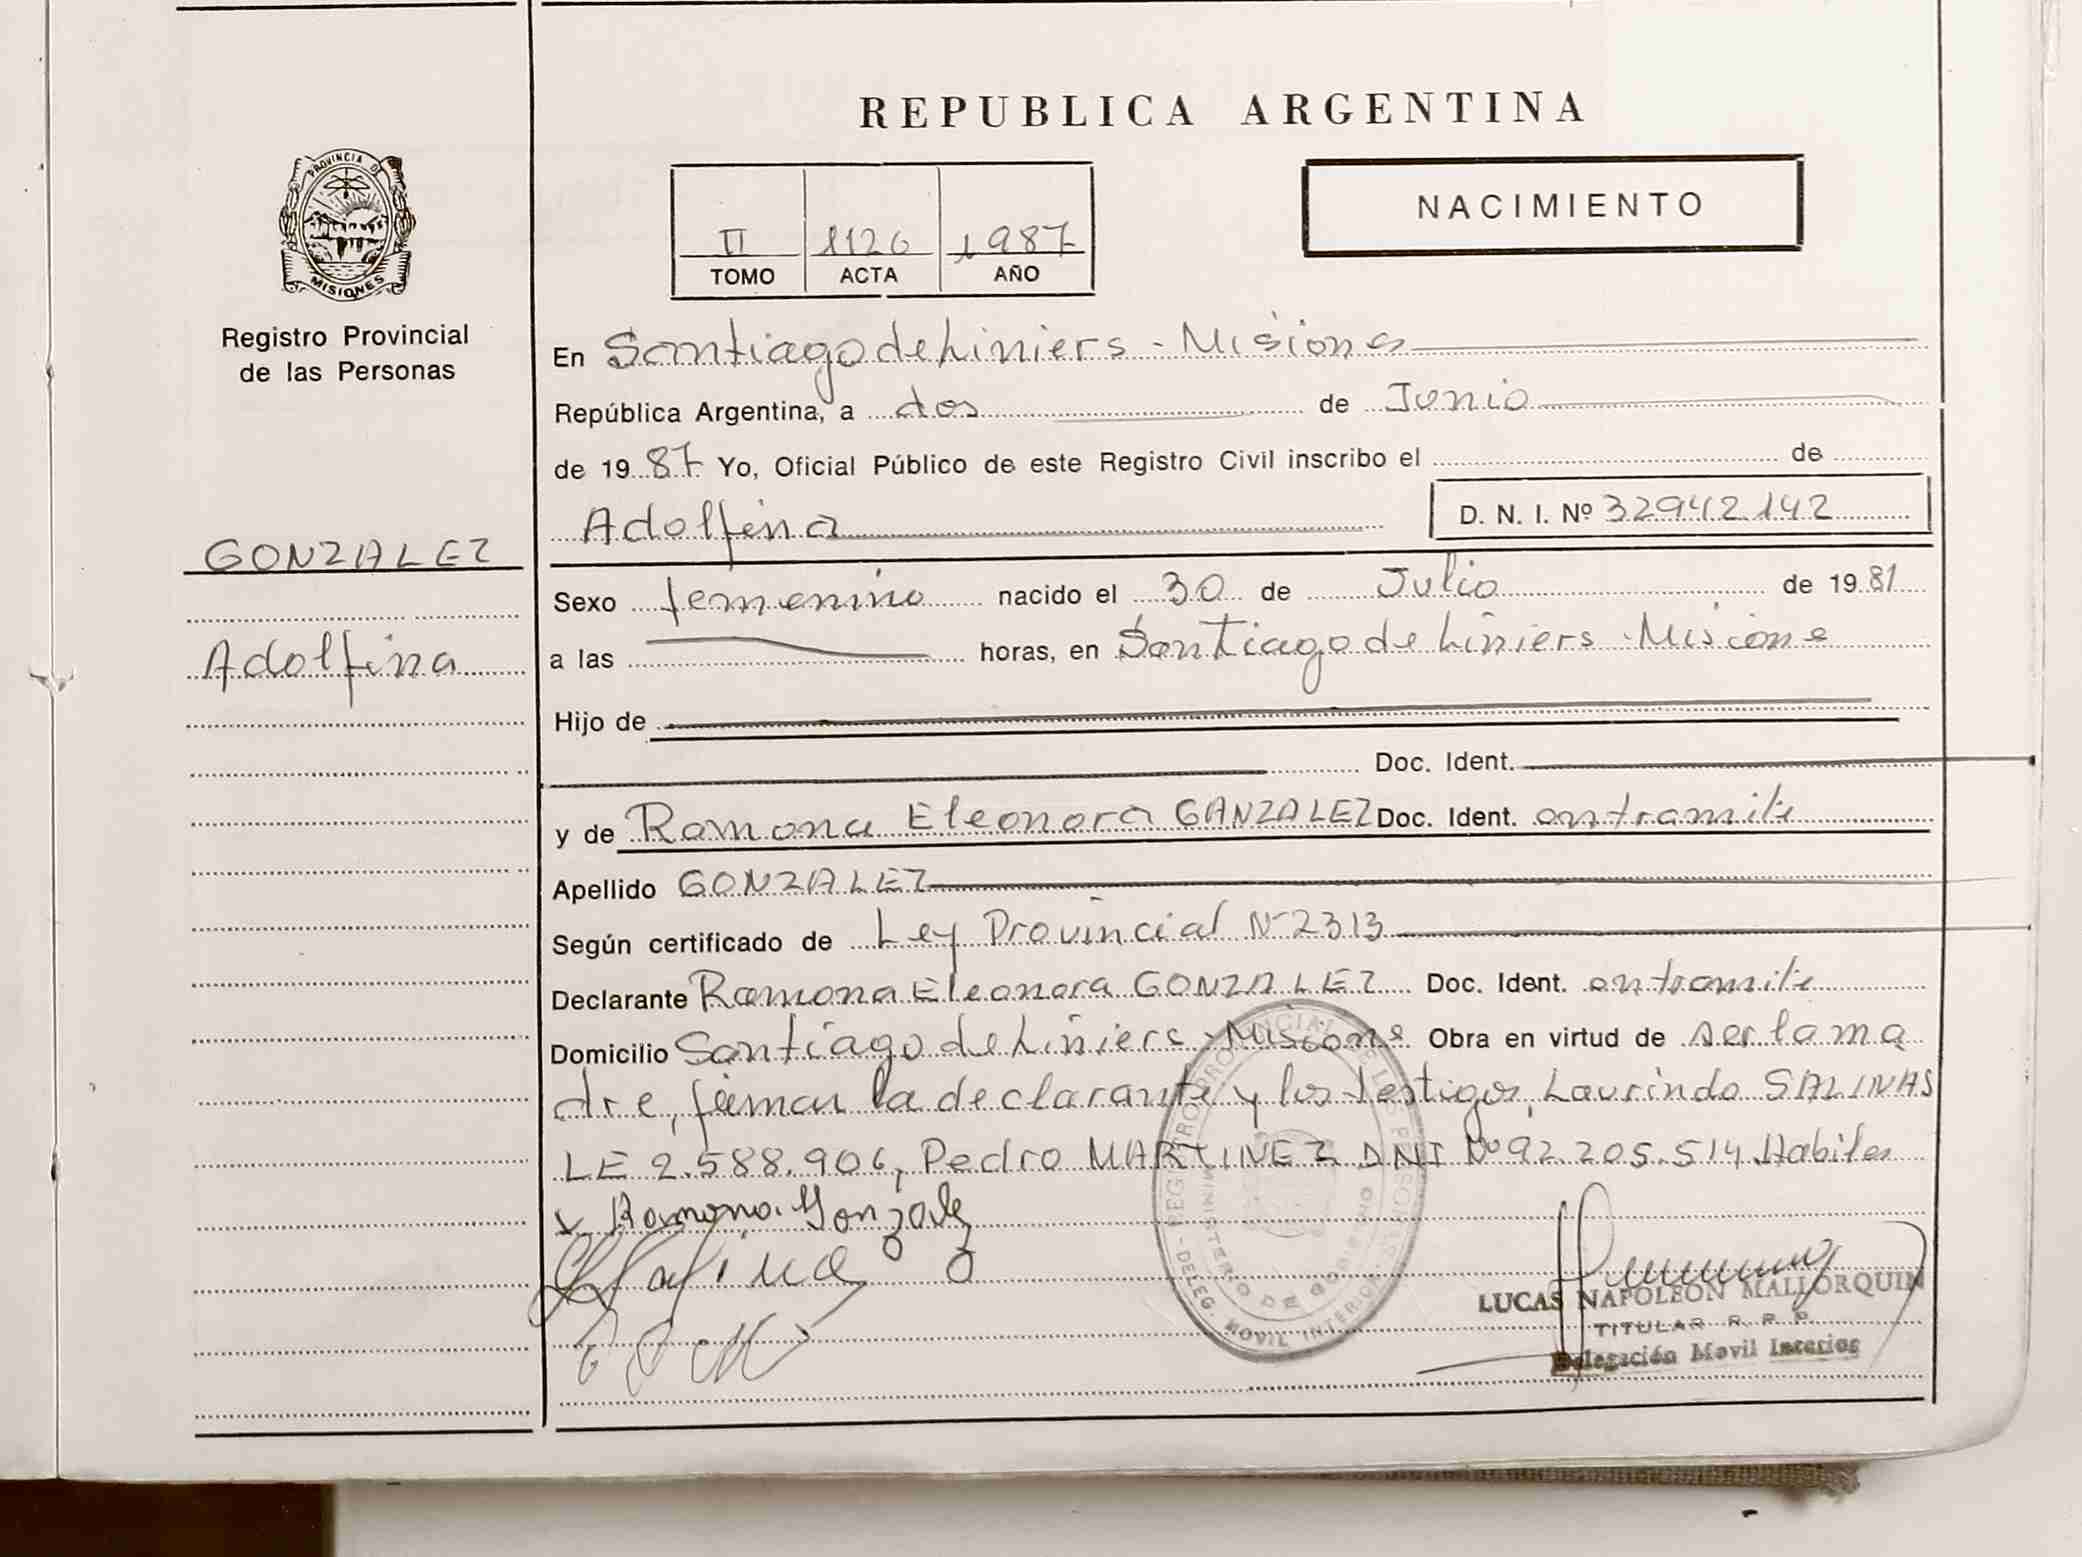 REPUBLICA ARGENTINA
PROVINCIA DE
MISIONES
Registro Provincial
de las Personas
NACIMIENTO
II 1126 1987
TOMO ACTA AÑO
En Santiago de Liniers - Misiones
República Argentina, a dos de Junio
de 19 87 Yo, Oficial Público de este Registro Civil inscribo el de
Adolfina
D. N. I. Nº 32942142
GONZALEZ
Adolfina
Sexo femenino nacido el 30 de Julio de 19 81
a las horas, en Santiago de Liniers - Misiones
Hijo de
Doc. Ident.
y de Ramona Eleonora GANZALEZ Doc. Ident. entramite
Apellido GONZALEZ
Según certificado de Ley Provincial Nº 2313
Declarante Ramona Eleonora GONZALEZ Doc. Ident. entramite
Domicilio Santiago de Liniers - Misiones Obra en virtud de ser la ma
dre, firman la declarante y los testigos, Laurindo SALINAS
LE 2.588.906, Pedro MARTINEZ DNI Nº 92.205.514 Habiles
x Ramona Gonzalez
REGISTRO PROVINCIAL DE LAS PERSONAS
MINISTERIO DE GOBIERNO
DELEG. MOVIL INTERIOR
LUCAS NAPOLEON MALLORQUIN
TITULAR R. P. P.
Delegación Movil Interior